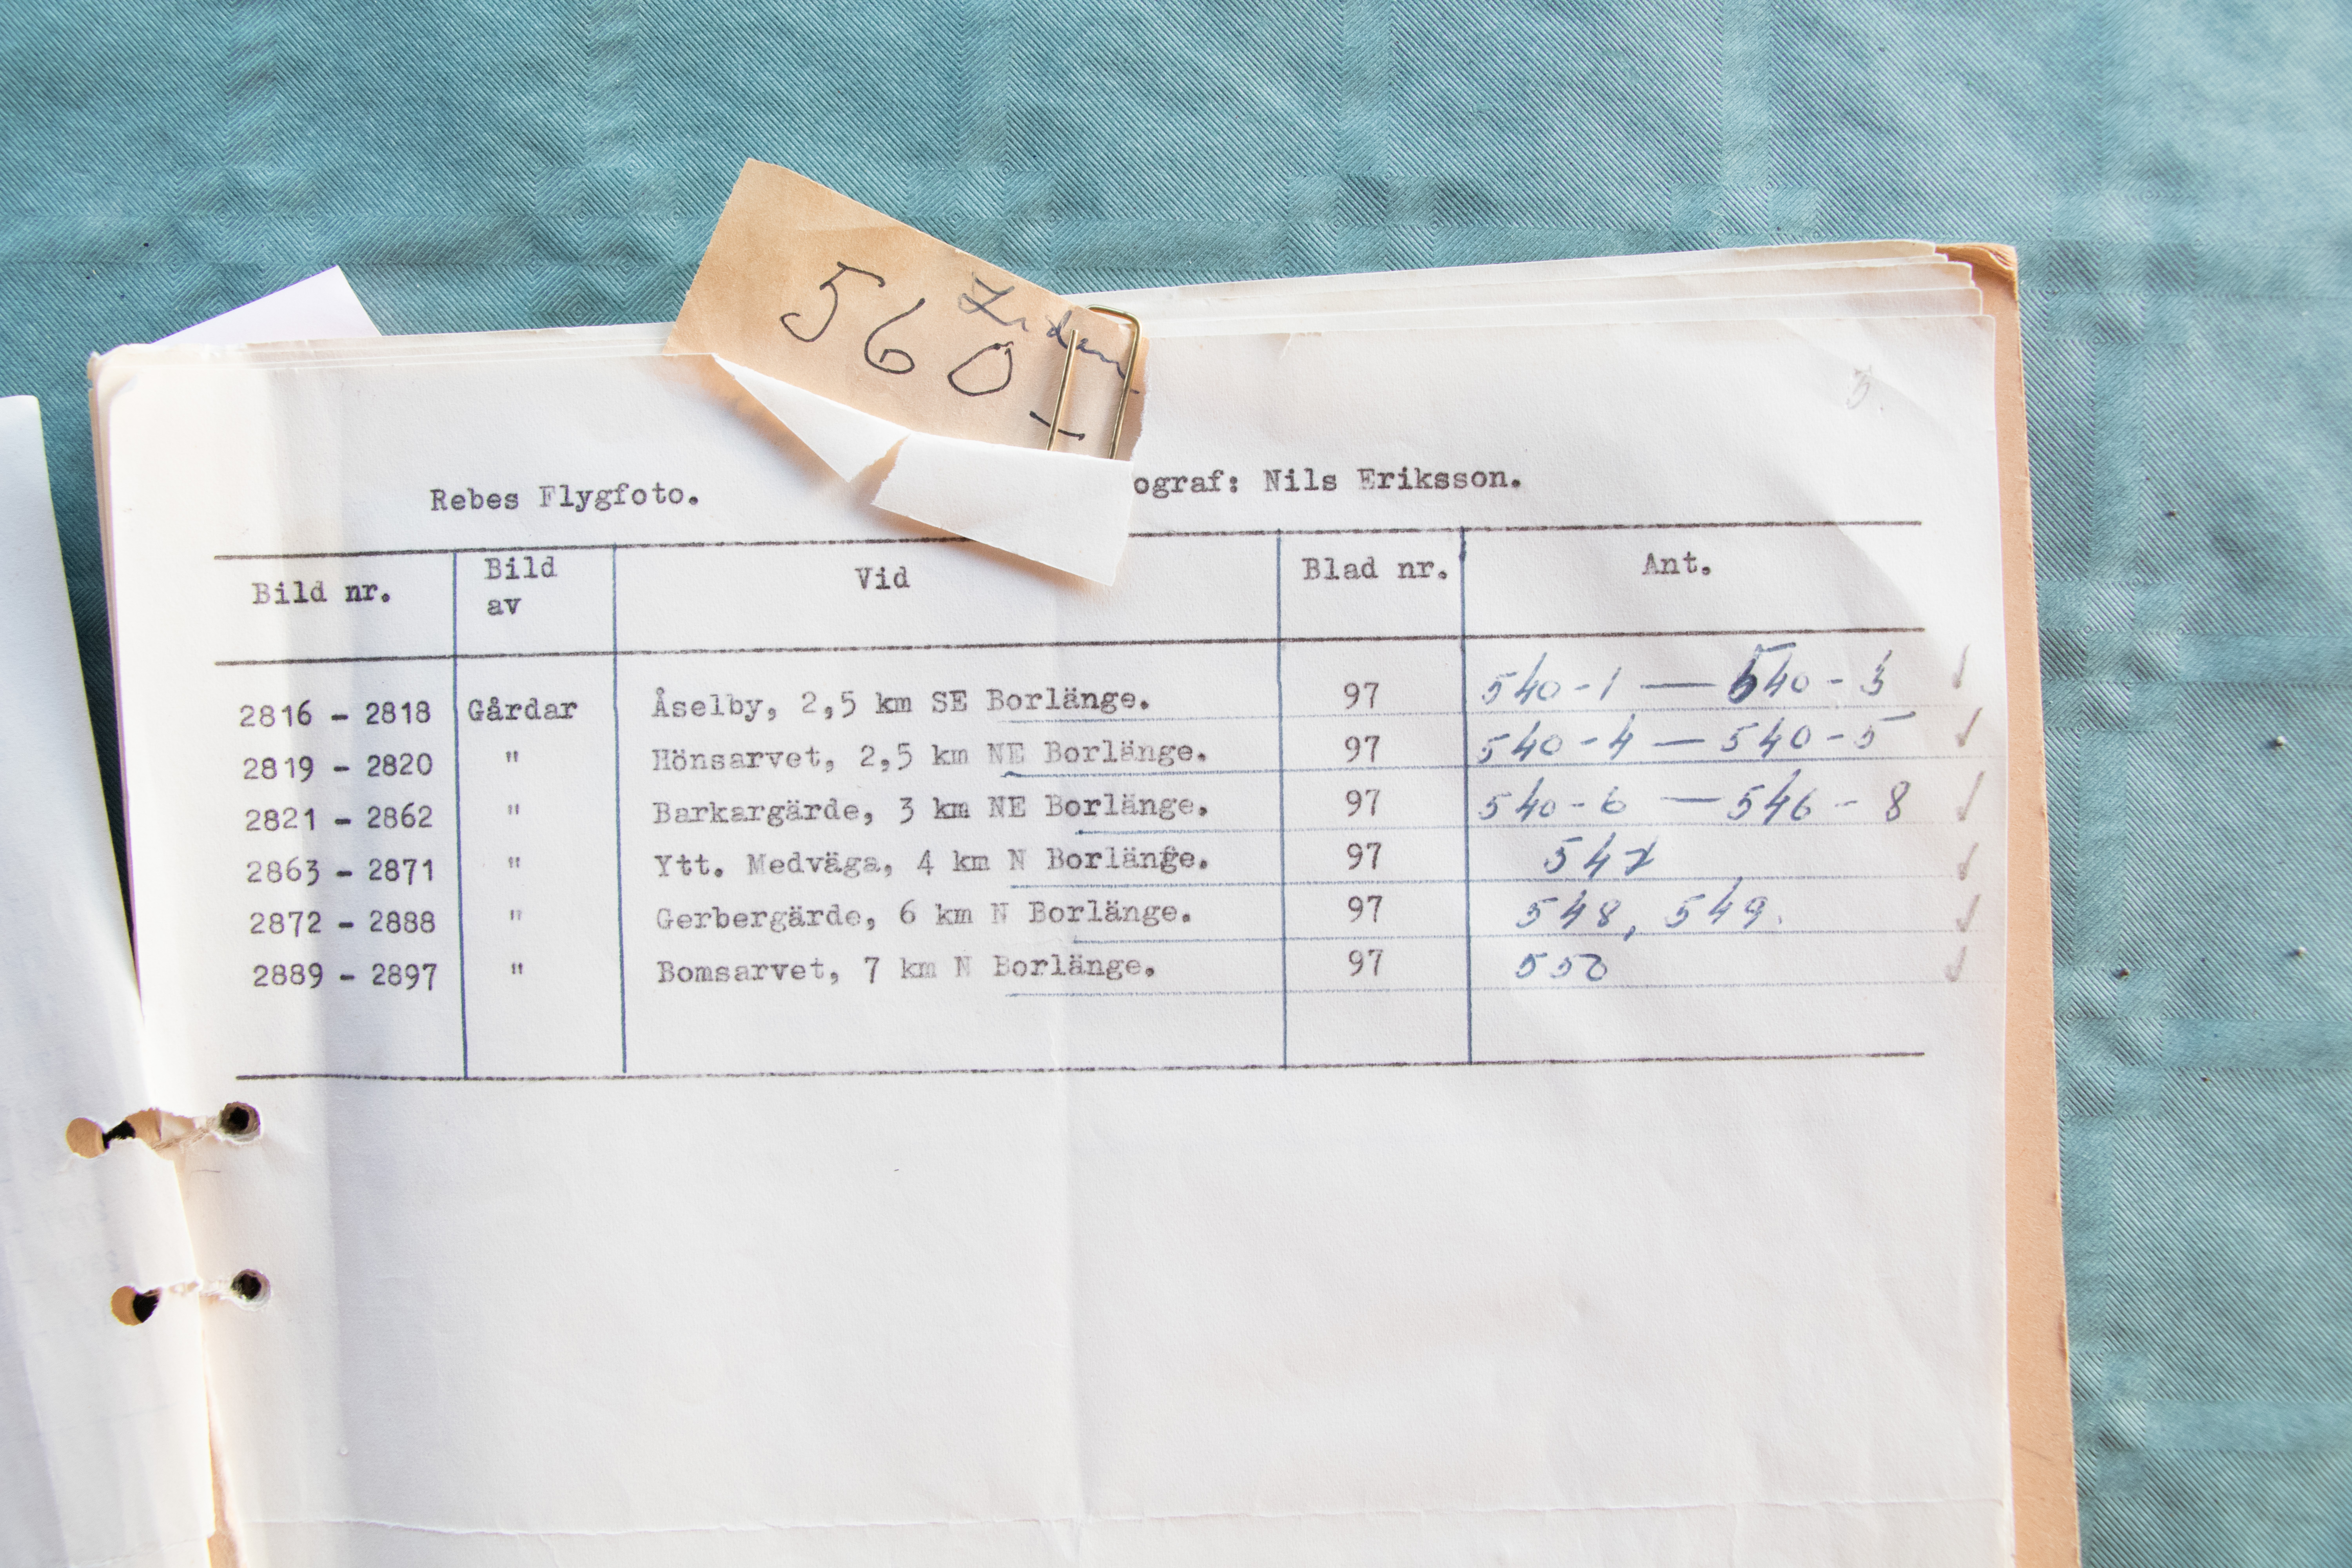 560
5.
Rebes Flygfoto. ograf: Nils Eriksson.
Bild nr. Bild av Vid Blad nr. Ant.
2816 - 2818 Gårdar Åselby, 2,5 km SE Borlänge. 97 540-1 — 540-3 ✓
2819 - 2820 " Hönsarvet, 2,5 km NE Borlänge. 97 540-4 — 540-5 ✓
2821 - 2862 " Barkargärde, 3 km NE Borlänge. 97 540-6 — 546-8 ✓
2863 - 2871 " Ytt. Medväga, 4 km N Borlänge. 97 547 ✓
2872 - 2888 " Gerbergärde, 6 km N Borlänge. 97 548, 549. ✓
2889 - 2897 " Bomsarvet, 7 km N Borlänge. 97 550 ✓